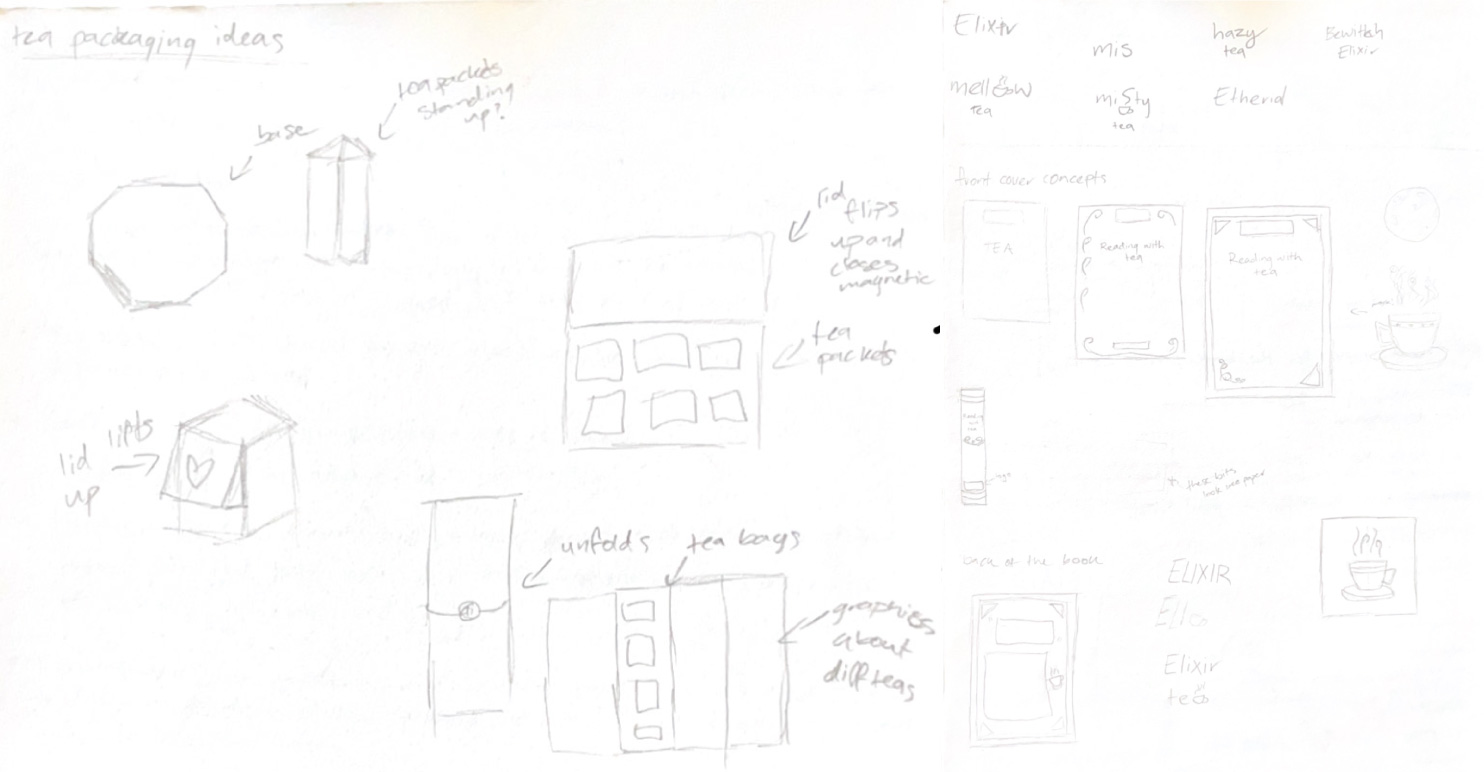 tea packaging ideas
tea packets
standing
up?
base
lid
flips
up and
closes
magnetic
tea
packets
lid lifts
up
unfolds
tea bags
graphics
about
diff teas
Elixir
mis
hazy
tea
Bewitch
Elixir
mellow
tea
misty
tea
Etherid
front cover concepts
TEA
Reading with
tea
Reading with
tea
logo
these bits
look like paper
back of the book
ELIXIR
Elixir
tea